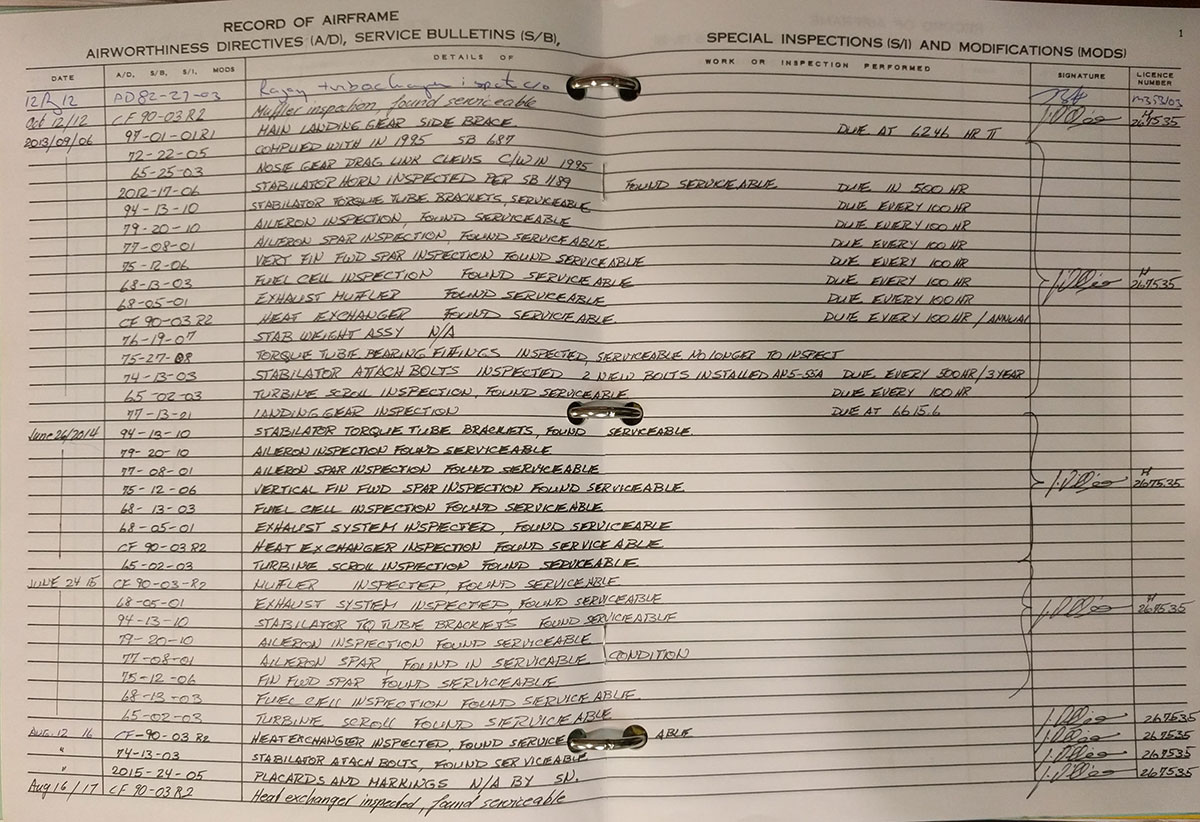 RECORD OF AIRFRAME
AIRWORTHINESS DIRECTIVES (A/D), SERVICE BULLETINS (S/B), SPECIAL INSPECTIONS (S/I) AND MODIFICATIONS (MODS) 1
DATE A/D, S/B, S/I, MODS DETAILS OF WORK OR INSPECTION PERFORMED SIGNATURE LICENCE NUMBER
AD82-27-03 Rajay turbocharger
Oct 12/12 CF 90-03 R2 Muffler inspection, found serviceable 267535
2013/09/06 97-01-01R1 MAIN LANDING GEAR SIDE BRACE DUE AT 6246 HR TT
72-22-05 COMPLIED WITH IN 1995 SB 687
65-25-03 NOSE GEAR DRAG LINK CLEVIS C/W IN 1995
2012-17-06 STABILATOR HORN INSPECTED PER SB 1189 FOUND SERVICEABLE DUE IN 500 HR
94-13-10 STABILATOR TORQUE TUBE BRACKETS, SERVICEABLE DUE EVERY 100 HR
79-20-10 AILERON INSPECTION, FOUND SERVICEABLE DUE EVERY 100 HR
77-08-01 AILERON SPAR INSPECTION, FOUND SERVICEABLE DUE EVERY 100 HR
75-12-06 VERT FIN FWD SPAR INSPECTION FOUND SERVICEABLE DUE EVERY 100 HR
68-13-03 FUEL CELL INSPECTION FOUND SERVICEABLE DUE EVERY 100 HR
68-05-01 EXHAUST MUFFLER FOUND SERVICEABLE DUE EVERY 100 HR M 267535
CF 90-03 R2 HEAT EXCHANGER FOUND SERVICEABLE DUE EVERY 100 HR / ANNUAL
76-19-07 STAB WEIGHT ASSY N/A
75-27-08 TORQUE TUBE BEARING FITTINGS INSPECTED, SERVICEABLE NO LONGER TO INSPECT
74-13-03 STABILATOR ATTACH BOLTS INSPECTED 2 NEW BOLTS INSTALLED AN5-55A DUE EVERY 500HR / 3 YEAR
65-02-03 TURBINE SCROLL INSPECTION, FOUND SERVICEABLE DUE EVERY 100 HR
77-13-21 LANDING GEAR INSPECTION DUE AT 6615.6
June 26/2014 94-13-10 STABILATOR TORQUE TUBE BRACKETS, FOUND SERVICEABLE.
79-20-10 AILERON INSPECTION FOUND SERVICEABLE
77-08-01 AILERON SPAR INSPECTION FOUND SERVICEABLE
75-12-06 VERTICAL FIN FWD SPAR INSPECTION FOUND SERVICEABLE M 267535
68-13-03 FUEL CELL INSPECTION FOUND SERVICEABLE
68-05-01 EXHAUST SYSTEM INSPECTED, FOUND SERVICEABLE
CF 90-03 R2 HEAT EXCHANGER INSPECTION FOUND SERVICEABLE
65-02-03 TURBINE SCROLL INSPECTION FOUND SERVICEABLE
JUNE 24 15 CF 90-03-R2 MUFFLER INSPECTED, FOUND SERVICEABLE
68-05-01 EXHAUST SYSTEM INSPECTED, FOUND SERVICEABLE M 267535
94-13-10 STABILATOR TQ TUBE BRACKETS FOUND SERVICEABLE
79-20-10 AILERON INSPECTION FOUND SERVICEABLE
77-08-01 AILERON SPAR FOUND IN SERVICABLE CONDITION
75-12-06 FIN FWD SPAR FOUND SERVICEABLE
68-13-03 FUEL CELL INSPECTION FOUND SERVICEABLE
65-02-03 TURBINE SCROLL FOUND SERVICEABLE 267535
AUG. 12 16 CF-90-03 R2 HEAT EXCHANGER INSPECTED, FOUND SERVICE ABLE 267535
" 74-13-03 STABILATOR ATACH BOLTS, FOUND SERVICEABLE 267535
" 2015-24-05 PLACARDS AND MARKINGS N/A BY SN. 267535
Aug 16/17 CF 90-03 R2 Heat exchanger inspected, found serviceable